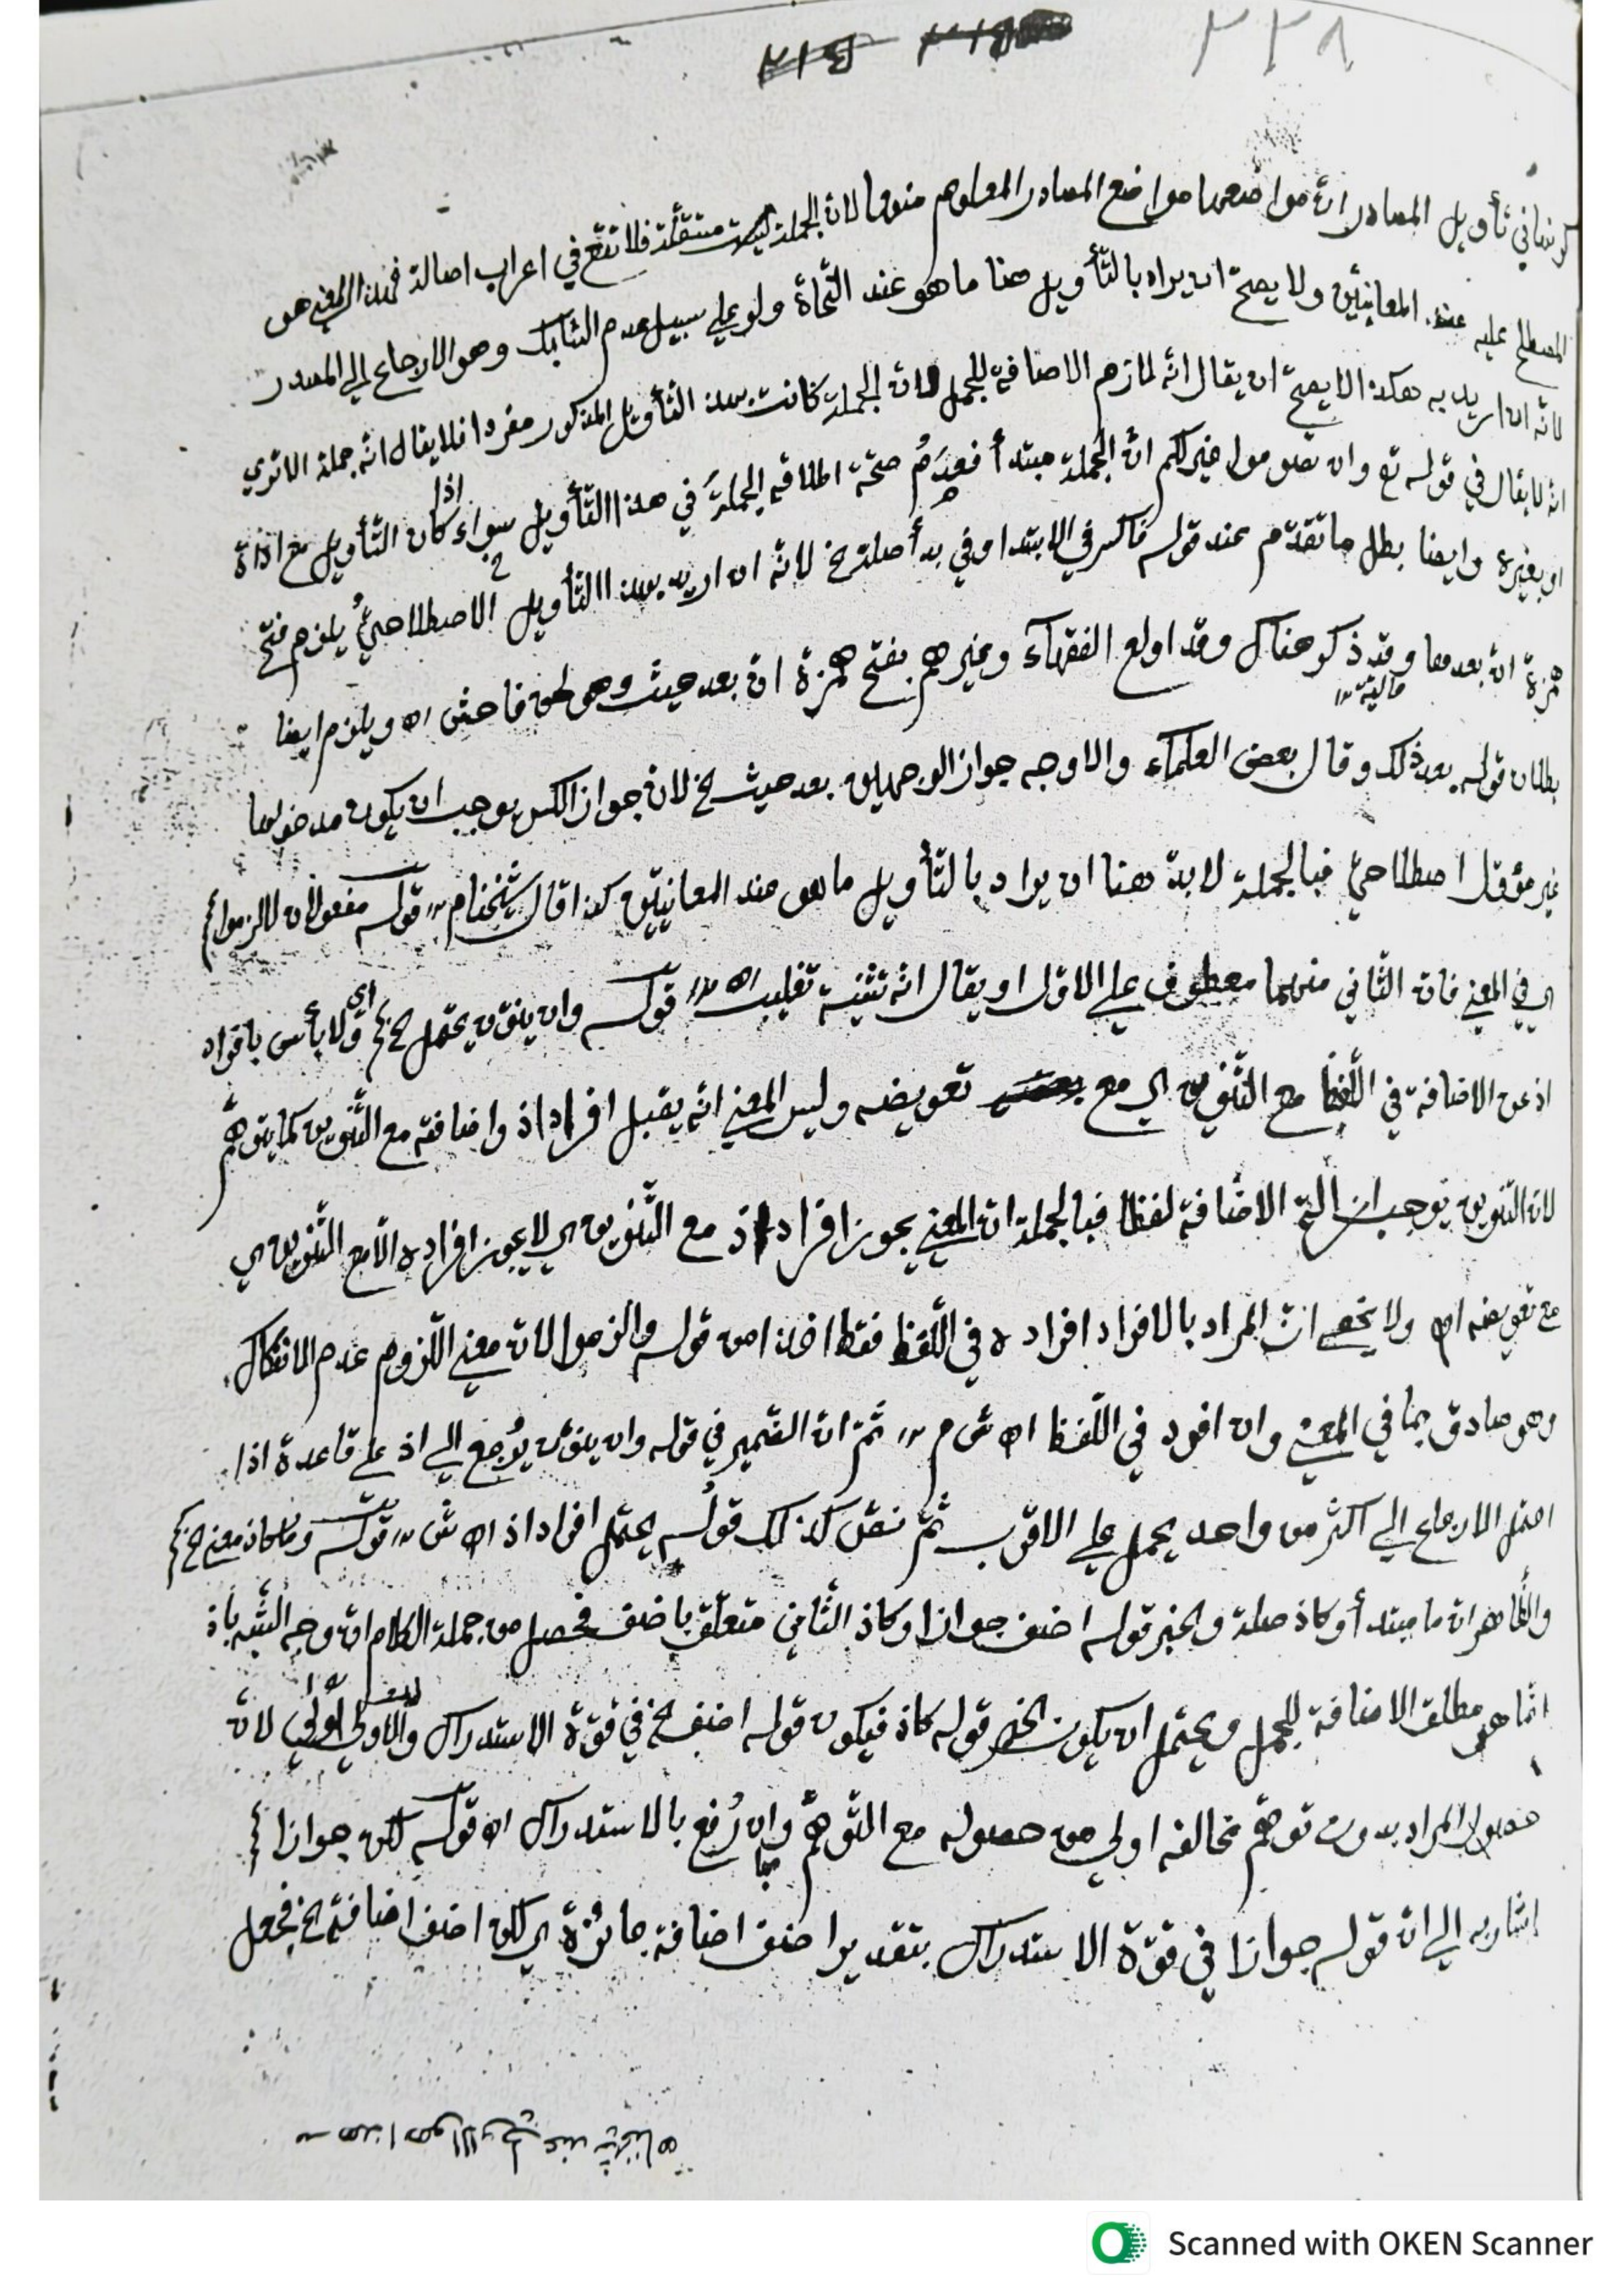 ٣٣٨
كونها في تأويل المصادر ان مواضعها مواضع المصادر المعلوم منها لان الجملة ليست مستقلة فلا تقع في اعراب اصالة فهذا المعنى هو
المصطلح عليه عند المعانيين ولا يصح ان يراد بالتأويل هنا ما هو عند النحاة ولو على سبيل عدم السابك وهو الارجاع الى المصدر
لانه ان اريد به هكذا لا يصح ان يقال انه لازم الاضافة للجمل لان الجملة كانت بهذا التأويل المذكور مفردا فلا يقال انه جملة الا ترى
انه لا يقال في قوله تع وان تصوموا خير لكم ان الجملة مبتدأ فعدم صحة اطلاقه الجملة في هذا التأويل سواء كان التأويل مع اداة
او بغيره وايضا بطل ما تقدم عند قوله فاكسر في الابتدا وفي بدأ صلة لخ لانه ان اريد بهذا التأويل الاصطلاحي يلزم فتح
همزة ان بعدها وقد ذكر هناك وقد اولع الفقهاء وغيرهم بفتح همزة ان بعد حيث وهو لحن فاحش اه ويلزم ايضا
بطلان قوله بعد ذلك وقال بعض العلماء والاوجه جواز الوجهين بعد حيث لخ لان جواز الكسر يوجب ان يكون مدخولها
غير مؤول اصطلاحي فبالجملة لا بد هنا ان يراد بالتأويل ما هو عند المعانيين كذا قال شيخنا م ر قوله مفعولان لالزموا
اي في المعنى فان الثاني منهما معطوف على الاول او يقال انه تثنية تغليب اه قوله وان ينون يحتمل اي ولا بأس بافراد
اذ عن الاضافة في اللفظ مع التنوين اي مع تعويضه وليس المعنى انه يقبل افراد اذ واضافته مع التنوين كما يتوهم
لان التنوين يوجب ازالة الاضافة لفظا فبالجملة ان المعنى يجوز افراد اذ مع التنوين اي لا يجوز افراده الا مع التنوين اي
مع تعويضه اه ولا يخفى ان المراد بالافراد افراده في اللفظ فقط اخذا من قوله والزموا لان معنى اللزوم عدم الانفكاك
وهو صادق بما في المعنى وان افرد في اللفظ اه ش م ر ثم ان الضمير في قوله وان ينون يرجع الى اذ على قاعدة اذا
احتمل الارجاع الى اكثر من واحد يحمل على الاقرب ثم نقل كذلك قوله يحتمل افراد اذ اه ش قوله وما كاذ معنى
والظاهر ان ما مبتدأ وكاذ صلة والخبر قوله اضف جوازا وكاذ الثاني متعلق باضف فحصل من جملة الكلام ان وجه الشبه باذ
انما هو مطلق الاضافة للجمل ويحتمل ان يكون الخبر قوله كاذ فيكون قوله اضف لخ في قوة الاستدراك والاولى اولى لان
حصول المراد بدون توهم مخالفه اولى من حصوله مع التوهم وان رفع بالاستدراك اه قوله لكن جوازا
اشار به الى ان قوله جوازا في قوة الاستدراك بتقدير اضف اضافة جائزة اي لكن اضف اضافة لخ فجعل
Scanned with OKEN Scanner